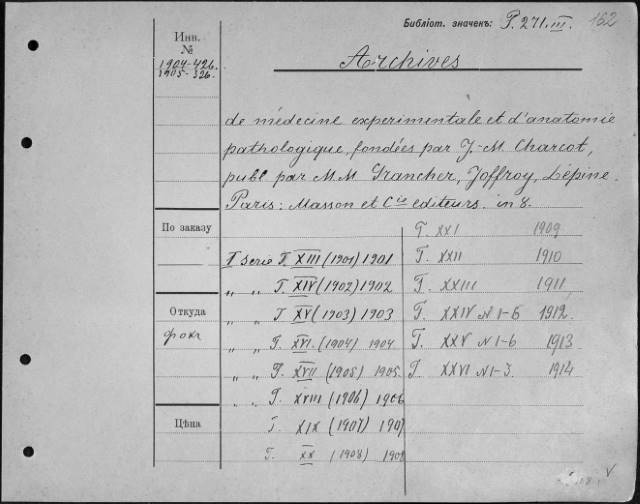 Бібліот. значекъ: P. 271. III. 162
Инв.
№
1904-426.
1905-326.
Archives
de médecine experimentale et d'anatomie
pathologique, fondées par J.-M. Charcot,
publ par M M Grancher, Joffroy, Lépine.
Paris: Masson et Cie editeurs. in 8.
По заказу
T. XXI 1909
I serie T. XIII (1901) 1901 T. XXII 1910
„ „ T. XIV (1902) 1902 T. XXIII 1911
Откуда
„ „ T XV (1903) 1903 T. XXIV N 1-6 1912.
„ „ T. XVI. (1904) 1904 T. XXV N 1-6 1913
„ „ T. XVII (1905) 1905. T XXVI N 1-3. 1914
„ „ T. XVIII (1906) 1906
Цѣна
T. XIX (1907) 1907
T. XX (1908) 1908
V